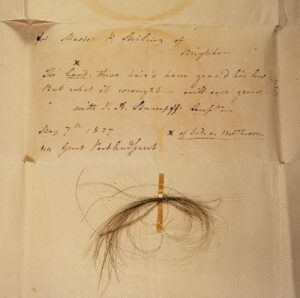 To Master Stirling of
Brighton
The head, these hairs have grac'd lies low
But what it wrought - will ever grow
with J. A. Stumpff
May 7th 1827
44 Great Portland Street
x of Beethoven